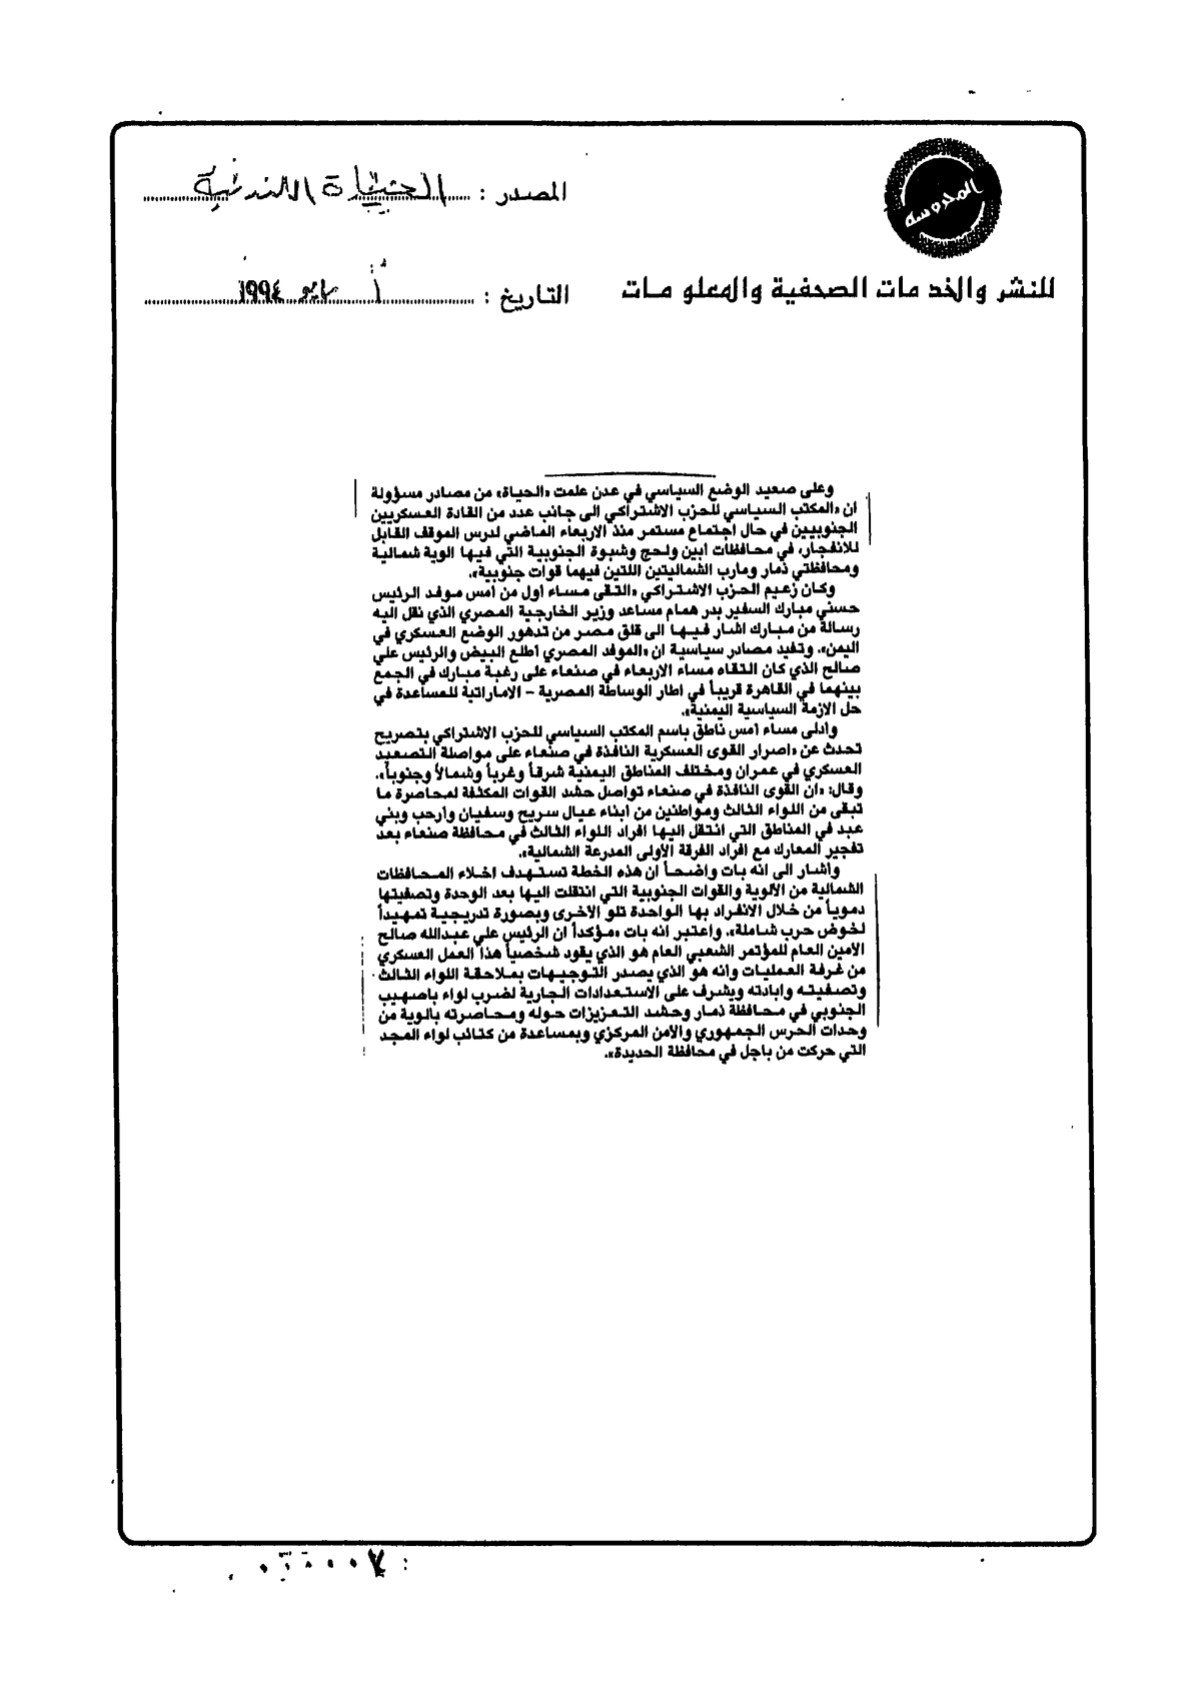 المحروسة
المصدر : الحياة اللندنية
للنشر والخدمات الصحفية والمعلومات
التاريخ : ١ مايو ١٩٩٤
وعلى صعيد الوضع السياسي في عدن علمت «الحياة» من مصادر مسؤولة
ان «المكتب السياسي للحزب الاشتراكي الى جانب عدد من القادة العسكريين
الجنوبيين في حال اجتماع مستمر منذ الاربعاء الماضي لدرس الموقف القابل
للانفجار، في محافظات ابين ولحج وشبوة الجنوبية التي فيها الوية شمالية
ومحافظتي ذمار ومارب الشماليتين اللتين فيهما قوات جنوبية».
وكان زعيم الحزب الاشتراكي «التقى مساء أول من أمس موفد الرئيس
حسني مبارك السفير بدر همام مساعد وزير الخارجية المصري الذي نقل اليه
رسالة من مبارك اشار فيها الى قلق مصر من تدهور الوضع العسكري في
اليمن». وتفيد مصادر سياسية ان «الموفد المصري أطلع البيض والرئيس علي
صالح الذي كان التقاه مساء الاربعاء في صنعاء على رغبة مبارك في الجمع
بينهما في القاهرة قريباً في اطار الوساطة المصرية - الاماراتية للمساعدة في
حل الازمة السياسية اليمنية».
وأدلى مساء امس ناطق باسم المكتب السياسي للحزب الاشتراكي بتصريح
تحدث عن «اصرار القوى العسكرية النافذة في صنعاء على مواصلة التصعيد
العسكري في عمران ومختلف المناطق اليمنية شرقاً وغرباً وشمالاً وجنوباً».
وقال: «ان القوى النافذة في صنعاء تواصل حشد القوات المكثفة لمحاصرة ما
تبقى من اللواء الثالث ومواطنين من ابناء عيال سريح وسفيان وأرحب وبني
عبد في المناطق التي انتقل اليها افراد اللواء الثالث في محافظة صنعاء بعد
تفجير المعارك مع افراد الفرقة الأولى المدرعة الشمالية».
واشار الى انه بات واضحاً ان هذه الخطة تستهدف اخلاء المحافظات
الشمالية من الألوية والقوات الجنوبية التي انتقلت اليها بعد الوحدة وتصفيتها
دموياً من خلال الانفراد بها الواحدة تلو الاخرى وبصورة تدريجية تمهيداً
لخوض حرب شاملة». واعتبر انه بات «مؤكداً ان الرئيس علي عبدالله صالح
الامين العام للمؤتمر الشعبي العام هو الذي يقود شخصياً هذا العمل العسكري
من غرفة العمليات وانه هو الذي يصدر التوجيهات بملاحقة اللواء الثالث
وتصفيته وابادته ويشرف على الاستعدادات الجارية لضرب لواء باصهيب
الجنوبي في محافظة ذمار وحشد التعزيزات حوله ومحاصرته بالوية من
وحدات الحرس الجمهوري والامن المركزي وبمساعدة من كتائب لواء المجد
التي حركت من باجل في محافظة الحديدة».